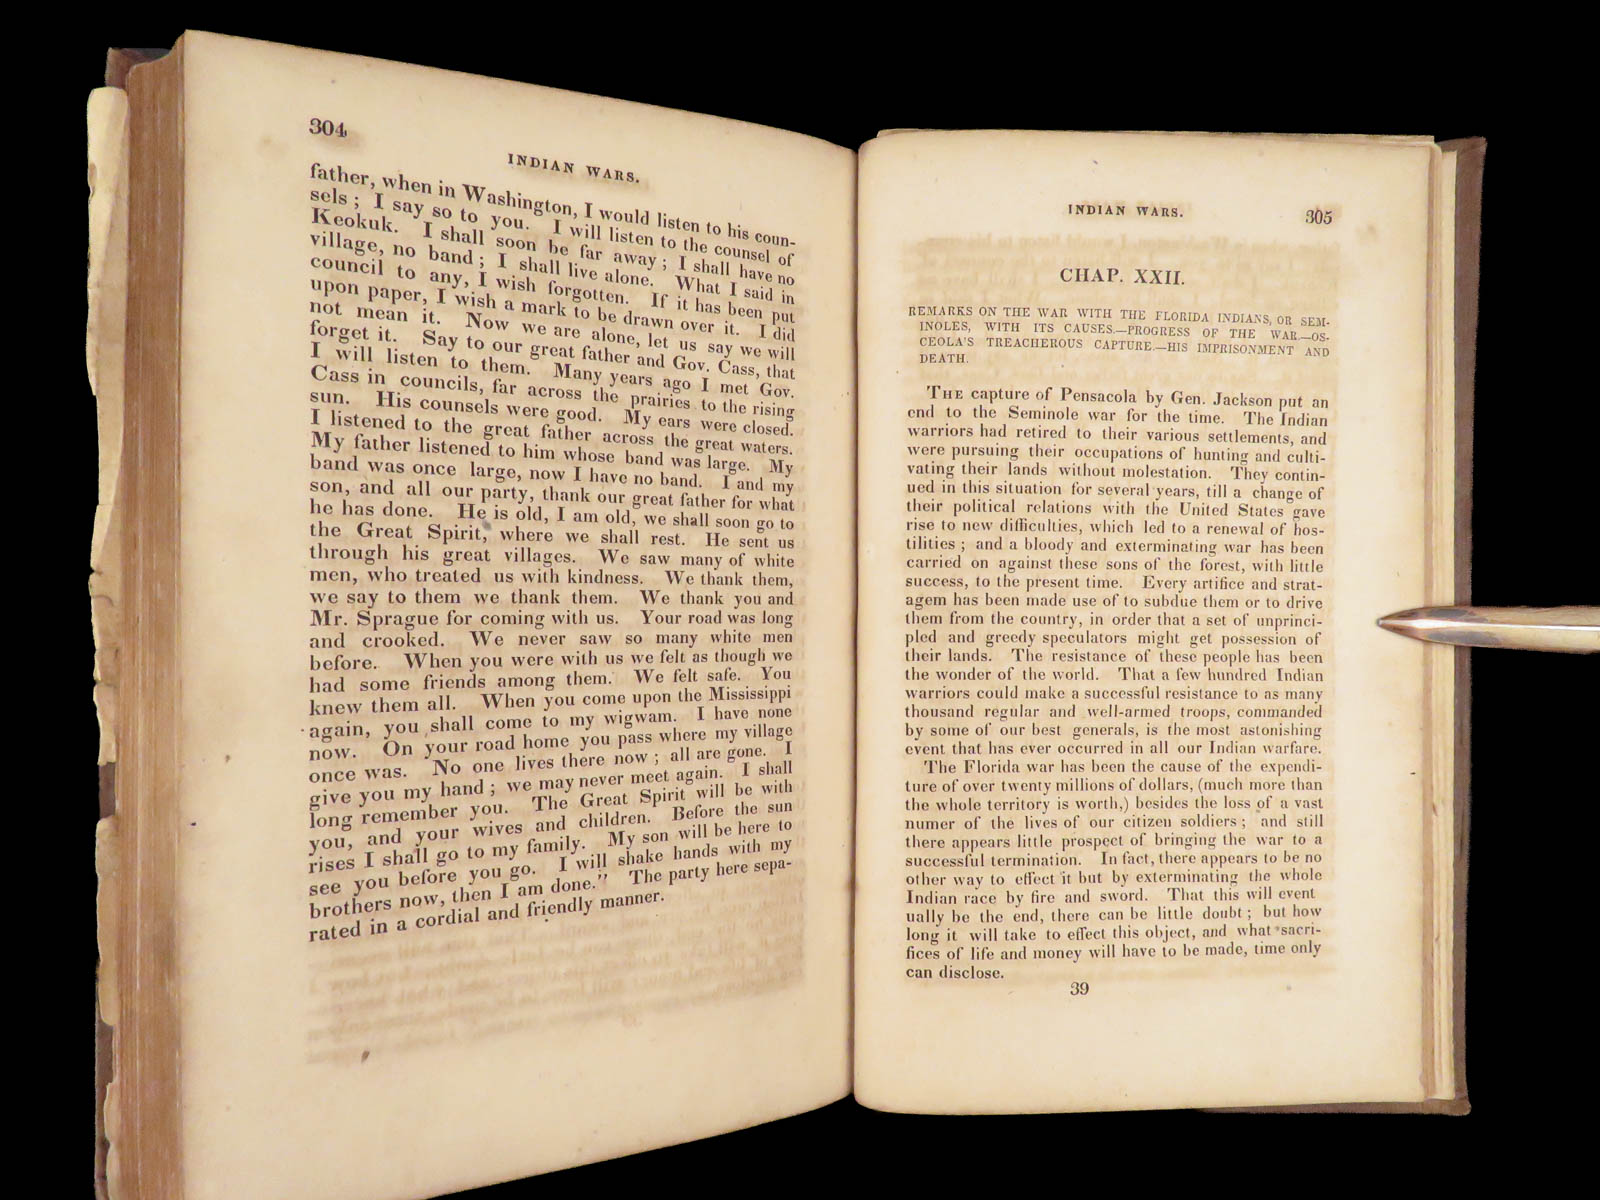 304
INDIAN WARS.
father, when in Washington, I would listen to his coun-
sels ; I say so to you. I will listen to the counsel of
Keokuk. I shall soon be far away ; I shall have no
village, no band ; I shall live alone. What I said in
council to any, I wish forgotten. If it has been put
upon paper, I wish a mark to be drawn over it. I did
not mean it. Now we are alone, let us say we will
forget it. Say to our great father and Gov. Cass, that
I will listen to them. Many years ago I met Gov.
Cass in councils, far across the prairies to the rising
sun. His counsels were good. My ears were closed.
I listened to the great father across the great waters.
My father listened to him whose band was large. My
band was once large, now I have no band. I and my
son, and all our party, thank our great father for what
he has done. He is old, I am old, we shall soon go to
the Great Spirit, where we shall rest. He sent us
through his great villages. We saw many of white
men, who treated us with kindness. We thank them,
we say to them we thank them. We thank you and
Mr. Sprague for coming with us. Your road was long
and crooked. We never saw so many white men
before. When you were with us we felt as though we
had some friends among them. We felt safe. You
knew them all. When you come upon the Mississippi
again, you shall come to my wigwam. I have none
now. On your road home you pass where my village
once was. No one lives there now ; all are gone. I
give you my hand ; we may never meet again. I shall
long remember you. The Great Spirit will be with
you, and your wives and children. Before the sun
rises I shall go to my family. My son will be here to
see you before you go. I will shake hands with my
brothers now, then I am done." The party here sepa-
rated in a cordial and friendly manner.
INDIAN WARS.
305
CHAP. XXII.
REMARKS ON THE WAR WITH THE FLORIDA INDIANS, OR SEM-
INOLES, WITH ITS CAUSES.—PROGRESS OF THE WAR.—OS-
CEOLA'S TREACHEROUS CAPTURE.—HIS IMPRISONMENT AND
DEATH.
THE capture of Pensacola by Gen. Jackson put an
end to the Seminole war for the time. The Indian
warriors had retired to their various settlements, and
were pursuing their occupations of hunting and culti-
vating their lands without molestation. They contin-
ued in this situation for several years, till a change of
their political relations with the United States gave
rise to new difficulties, which led to a renewal of hos-
tilities ; and a bloody and exterminating war has been
carried on against these sons of the forest, with little
success, to the present time. Every artifice and strat-
agem has been made use of to subdue them or to drive
them from the country, in order that a set of unprinci-
pled and greedy speculators might get possession of
their lands. The resistance of these people has been
the wonder of the world. That a few hundred Indian
warriors could make a successful resistance to as many
thousand regular and well-armed troops, commanded
by some of our best generals, is the most astonishing
event that has ever occurred in all our Indian warfare.
The Florida war has been the cause of the expendi-
ture of over twenty millions of dollars, (much more than
the whole territory is worth,) besides the loss of a vast
numer of the lives of our citizen soldiers ; and still
there appears little prospect of bringing the war to a
successful termination. In fact, there appears to be no
other way to effect it but by exterminating the whole
Indian race by fire and sword. That this will event
ually be the end, there can be little doubt ; but how
long it will take to effect this object, and what sacri-
fices of life and money will have to be made, time only
can disclose.
39